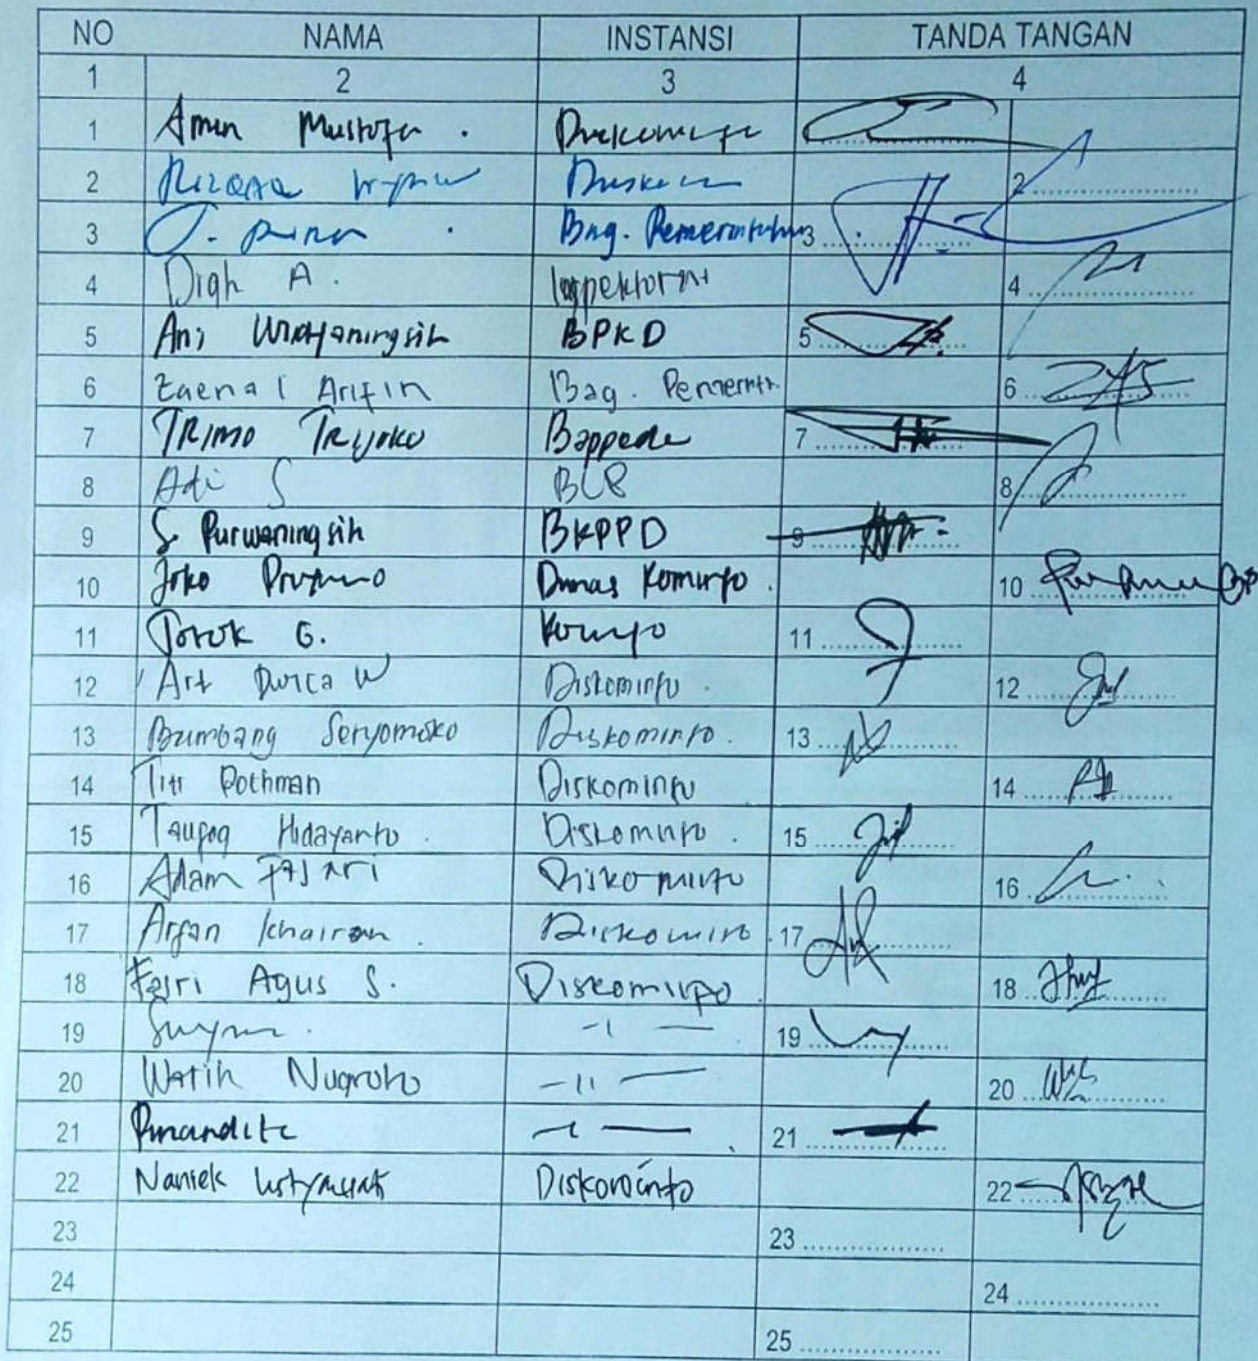 NO NAMA INSTANSI TANDA TANGAN
1 2 3 4
1 Amin Mustofa .
2
3 Bag. Pemerintahan 3
4 Digh A. Inspektorat 4
5 Ani Widyaningsih BPKD 5
6 Zaenal Arifin Bag. Pemernth. 6
7 TRIMO TRIJOKO Bappeda 7
8 Adi S 8
9 S. Purwaningsih BKPPD 9
10 Joko Dinas Kominfo . 10
11 G. Kominfo 11
12 W Diskominfo . 12
13 Bambang Diskominfo . 13
14 Titi Rochman Diskominfo 14
15 Taufoq Hidayanto . Diskominfo . 15
16 Adam Fajari Diskominfo 16
17 Arfan Khairan . Diskominfo . 17
18 Fajri Agus S. Diskominfo 18
19 19
20 Watih Nugroho -11- 20
21 Pinandita 21
22 Naniek Diskominfo 22
23 23
24 24
25 25